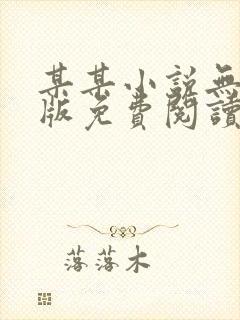 某某小說無
版免費閱讀
落落木